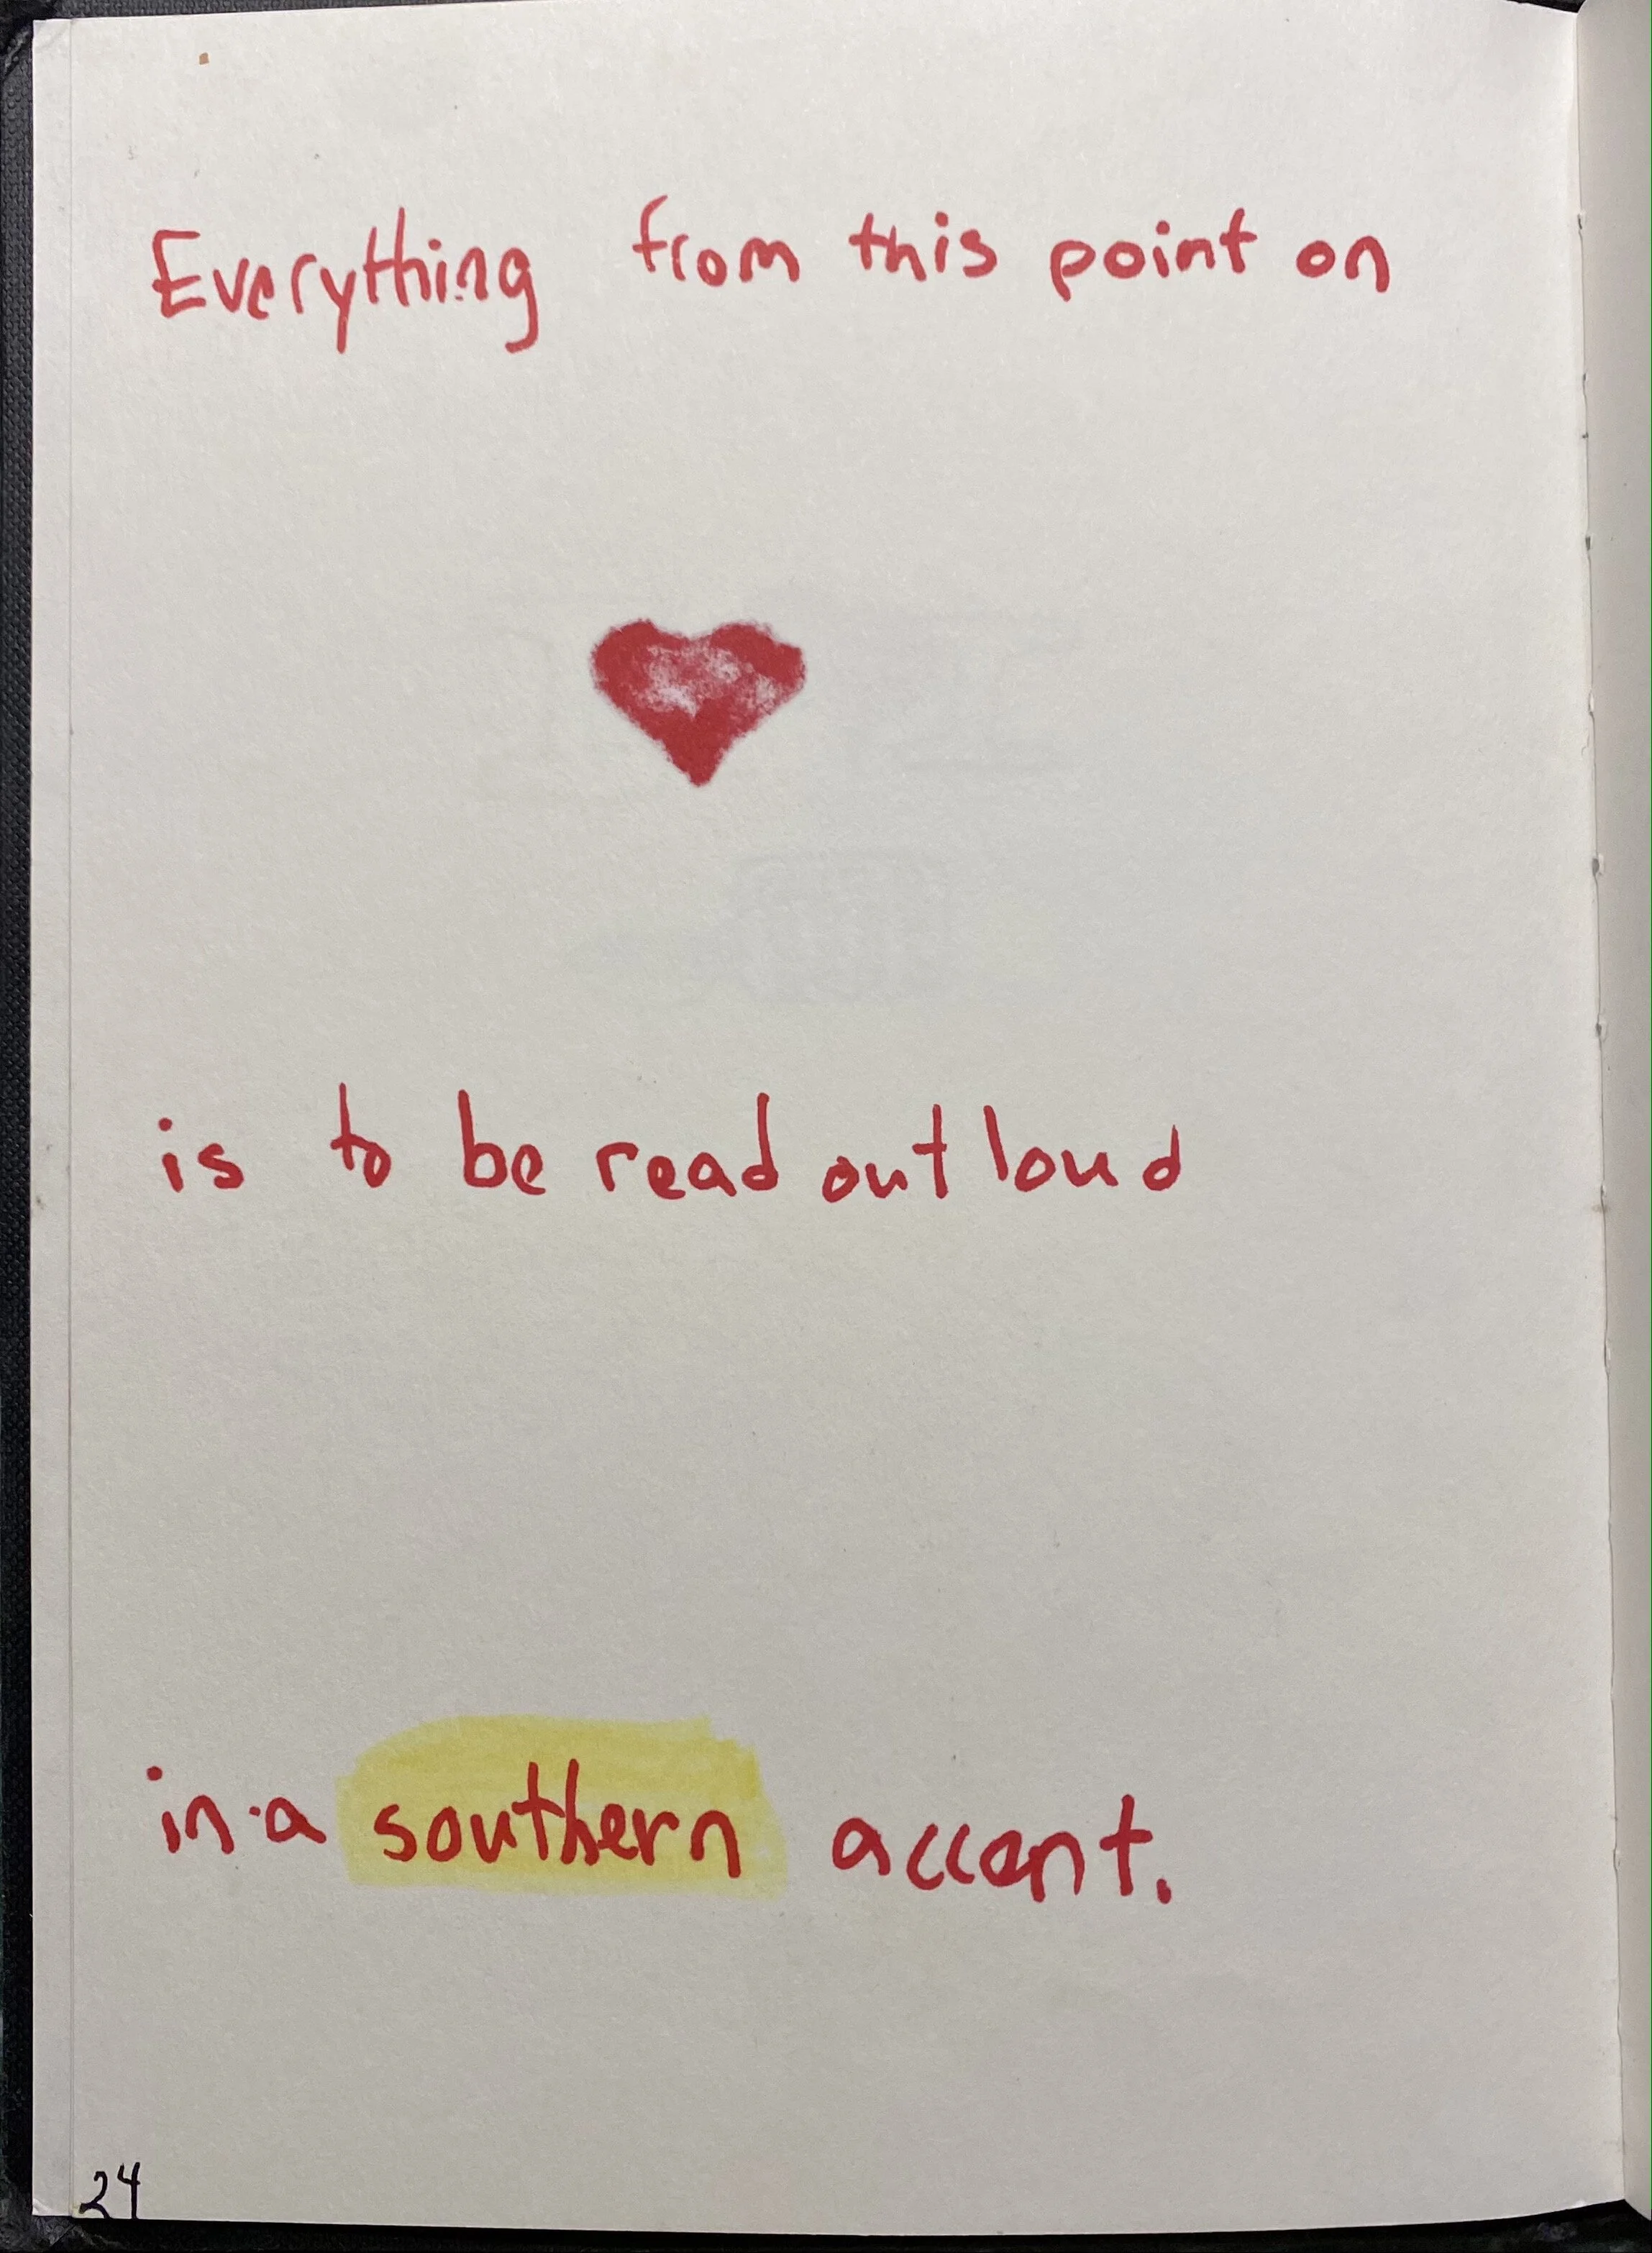 Everything from this point on
is to be read out loud
in a southern accent.
24